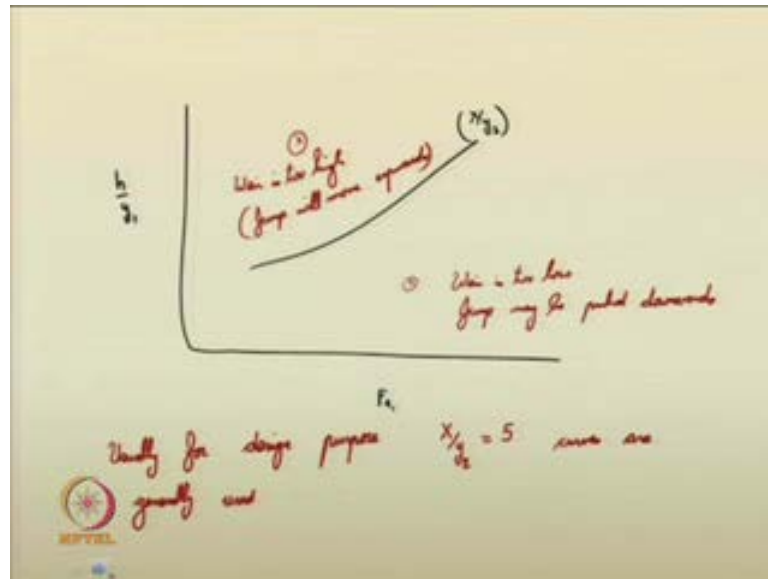 (x/y₂)
h/y₁
Weir is too high
(Jump will move upwards)
Weir is too low
Jump may be pushed downwards
Fr₁
Usually for design purpose x/y₂ = 5 curves are
generally used
NPTEL